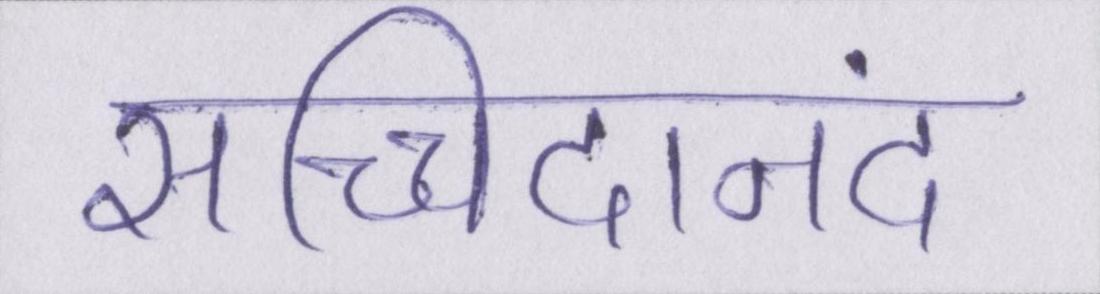 सच्चिदानंद